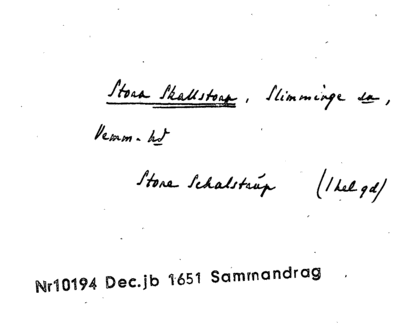 Stora Skallstorp, Slimminge sn,
Vemm. hd
Store Schalstrup (1 hel gd)
Nr10194 Dec.jb 1651 Sammandrag